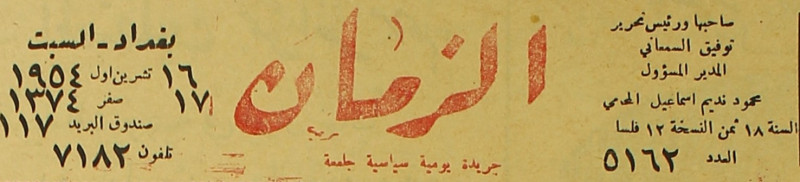 صاحبها ورئيس تحرير
توفيق السمعاني
المدير المسؤول
محمود نديم اسماعيل المحامي
السنة ١٨ ثمن النسخة ١٢ فلسا
العدد ٥١٦٢
الزمان
جريدة يومية سياسية جامعة
بغداد - السبت
١٦ تشرين اول ١٩٥٤
١٧ صفر ١٣٧٤
صندوق البريد ١١٧
تلفون ٧١٨٢